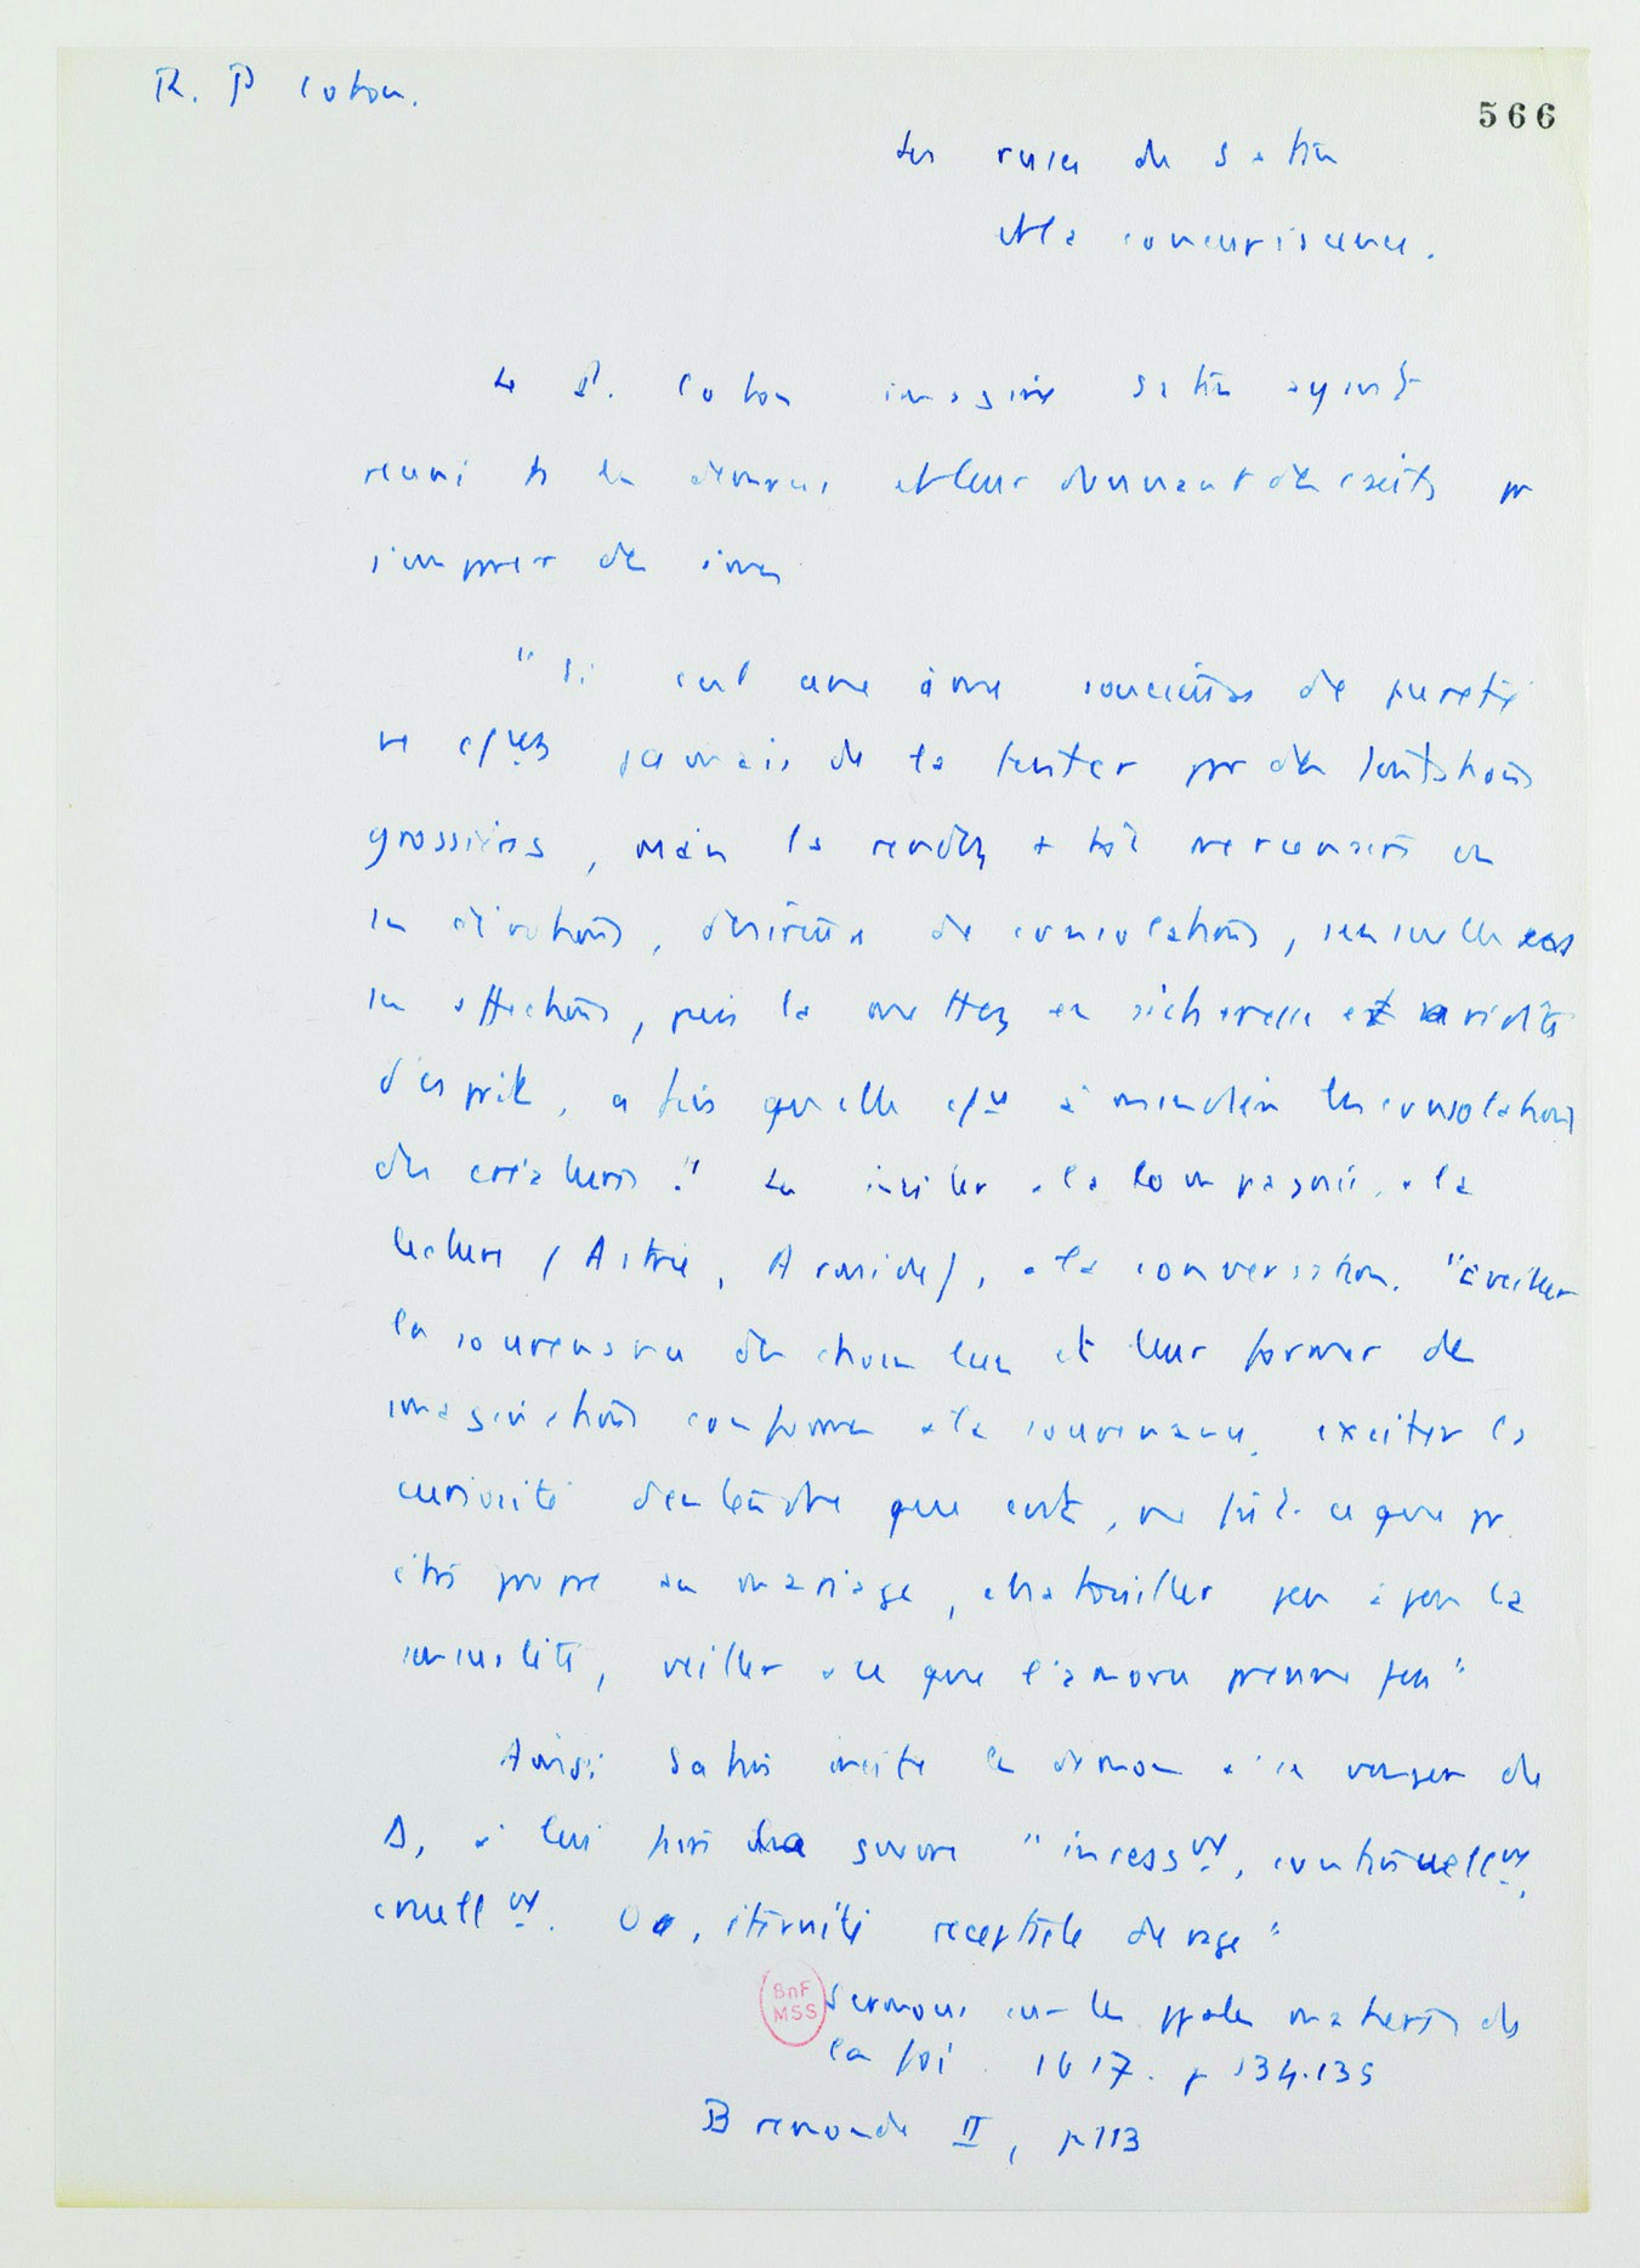 R. P Coton.
566
Les ruses de Satan
et la concupiscence.
Le P. Coton imagine Satan ayant
reuni ts les demons et leur donnant des conseils pr
s'emparer des âmes
"Si c'est une âme soucieuse de pureté
ne essayez jamais de la tenter par des tentations
grossières, mais la rendez + tôt
en dévotions, désireuse de consolations, sensuelle
en affections, puis la mettez en sécheresse et aridité
d'esprit, afin qu'elle à mendier les consolations
des créatures." Les inciter à la compagnie, à la
lecture (Astrée, Arcadie), à la conversation. "Éveiller
la souvenance des choses lues et leur former des
imaginations conformes à la souvenance, exciter la
curiosité d'entendre que c'est, ne fût-ce que pr
être propre au mariage, chatouiller peu à peu la
sensualité, veiller à ce que l'amorce prenne feu"
Ainsi Satan incite les démons à se venger de
D, à lui faire la guerre "incessmt, continuellemt,
cruellmt. O, éternité réceptacle de rage"
BnF
MSS
Sermons sur les ppales matières de
la foi. 1617. p 134.135
Bremond II, p 113